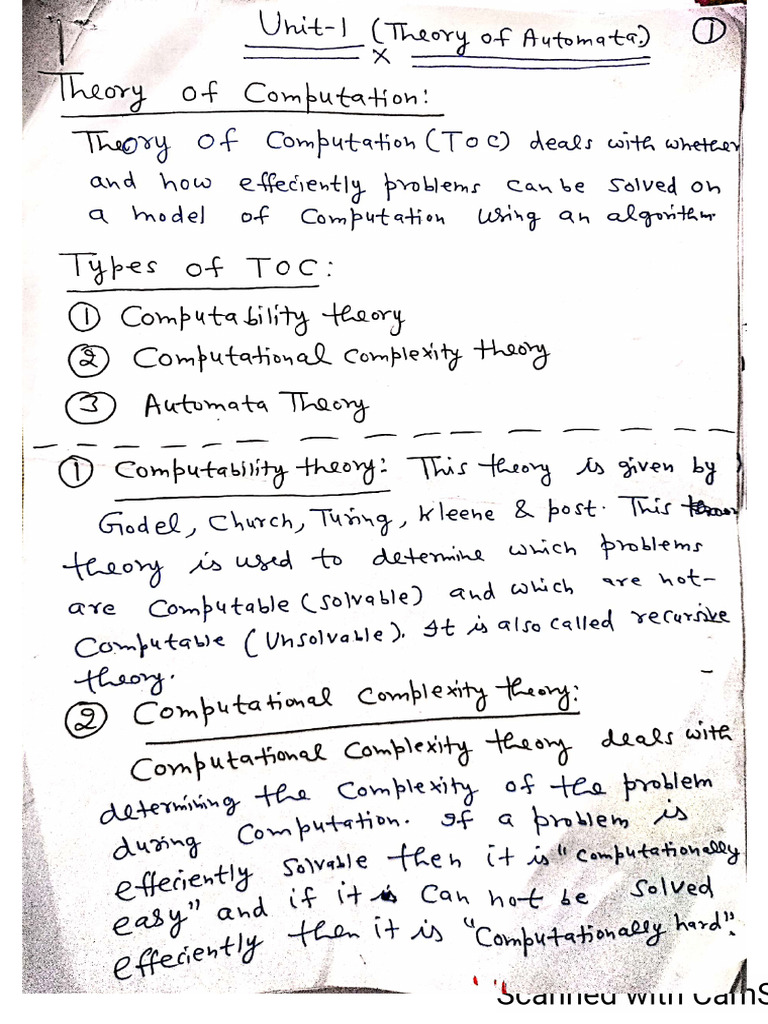 Unit-1 (Theory of Automata.) ①
×
Theory of Computation:
Theory of Computation (TOC) deals with whether
and how effeciently problems can be solved on
a model of computation using an algorithm
Types of TOC:
① Computability theory
② Computational complexity theory
③ Automata Theory
① Computability theory: This theory is given by
Godel, Church, Turing, Kleene & post. This
theory is used to determine which problems
are computable (solvable) and which are not-
computable (Unsolvable). It is also called recursive
theory.
② Computational complexity theory:
Computational complexity theory deals with
determining the complexity of the problem
during computation. If a problem is
effeciently solvable then it is "computationally
easy" and if it is can not be solved
effeciently then it is "Computationally hard".
Scanned with CamS